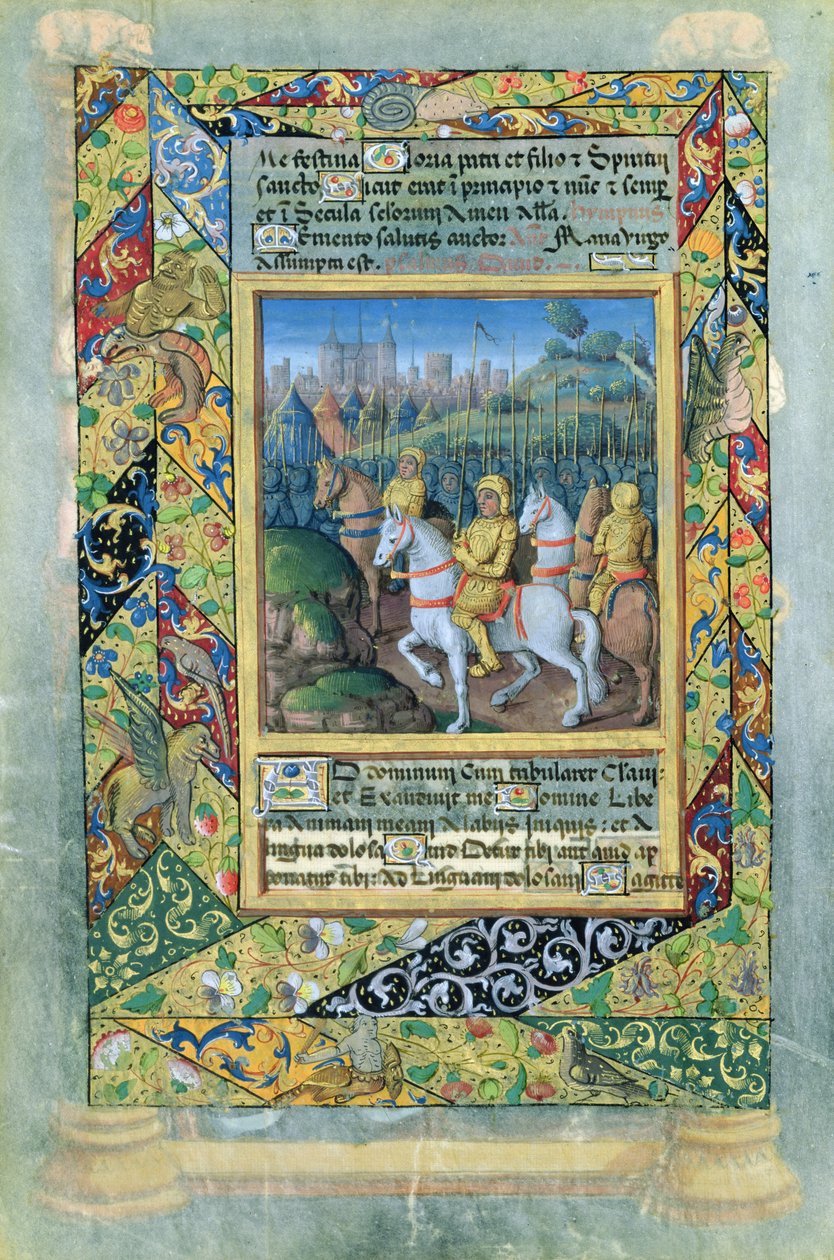 Me festina Gloria patri et filio ⁊ Spiritui
sancto Sicut erat ī principio ⁊ nūc ⁊ semp̄
et ī Secula sclorum Amen Alla. hympnus
Memento salutis auctor Añe Maria virgo
Assumpta est. psalmus David.
AD dominum Cum tribularer Clavi:
et Exaudivit me Domine Libe
ra Animam meam A labiis Iniquis: et A
lingua dolosa Quid Detur tibi aut quid ap
ponatur tibi: AD Linguam dolosam Sagitte